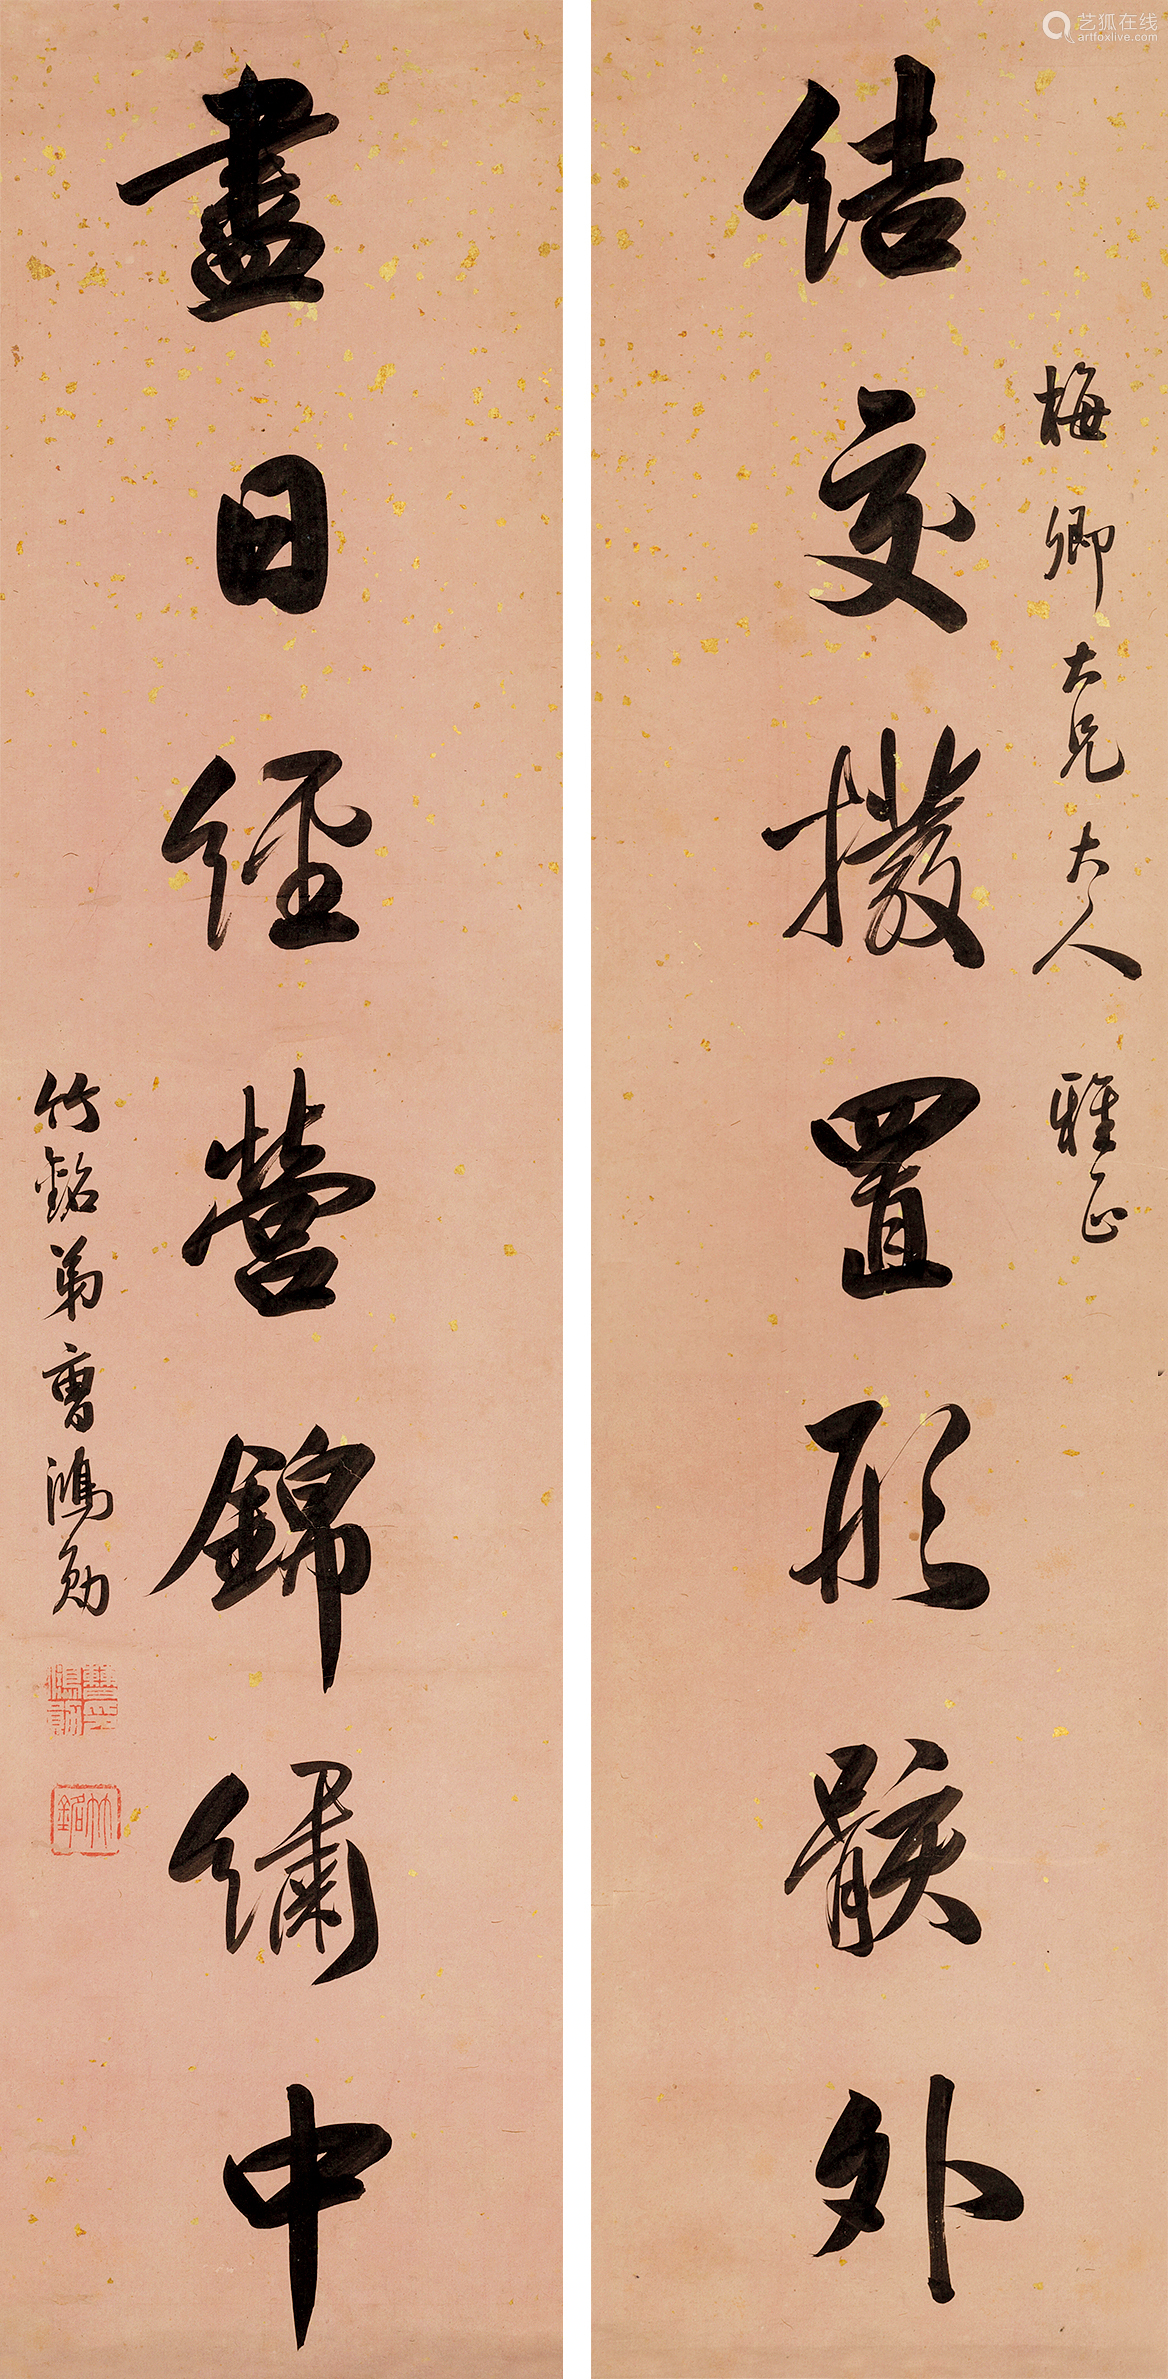 結交撥置形骸外
梅卿大兄大人 雅正
盡日經營錦繡中
竹銘弟曹鴻勛
竹銘
艺狐在线
artfoxlive.com